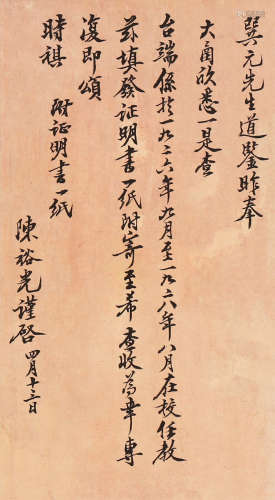 巽元先生道鑒昨奉
大函欣悉一是查
台端係於一九二六年九月至一九二八年八月在校任教
茲填發証明書一紙附寄至希查收為幸專
復即頌
時祺
附証明書一紙
陳裕光謹啓
四月十三日